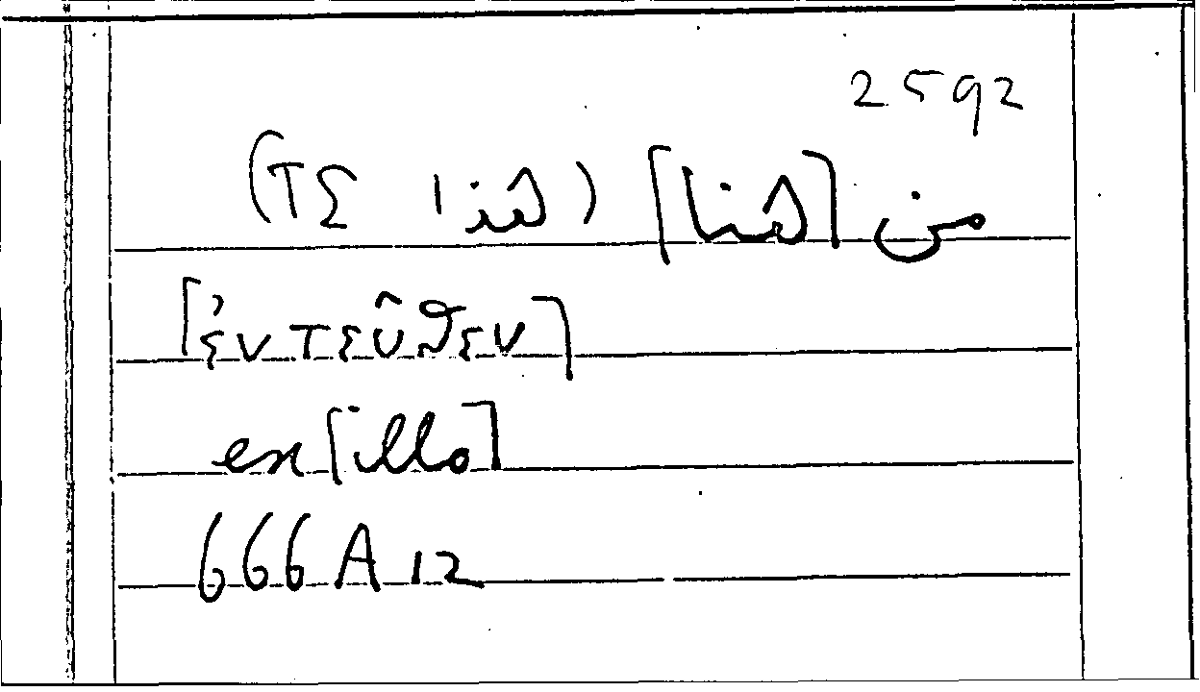 2592
من [هنا] (هذا ΤΕ)
[ἐντεῦθεν]
ex [illo]
666 A 12